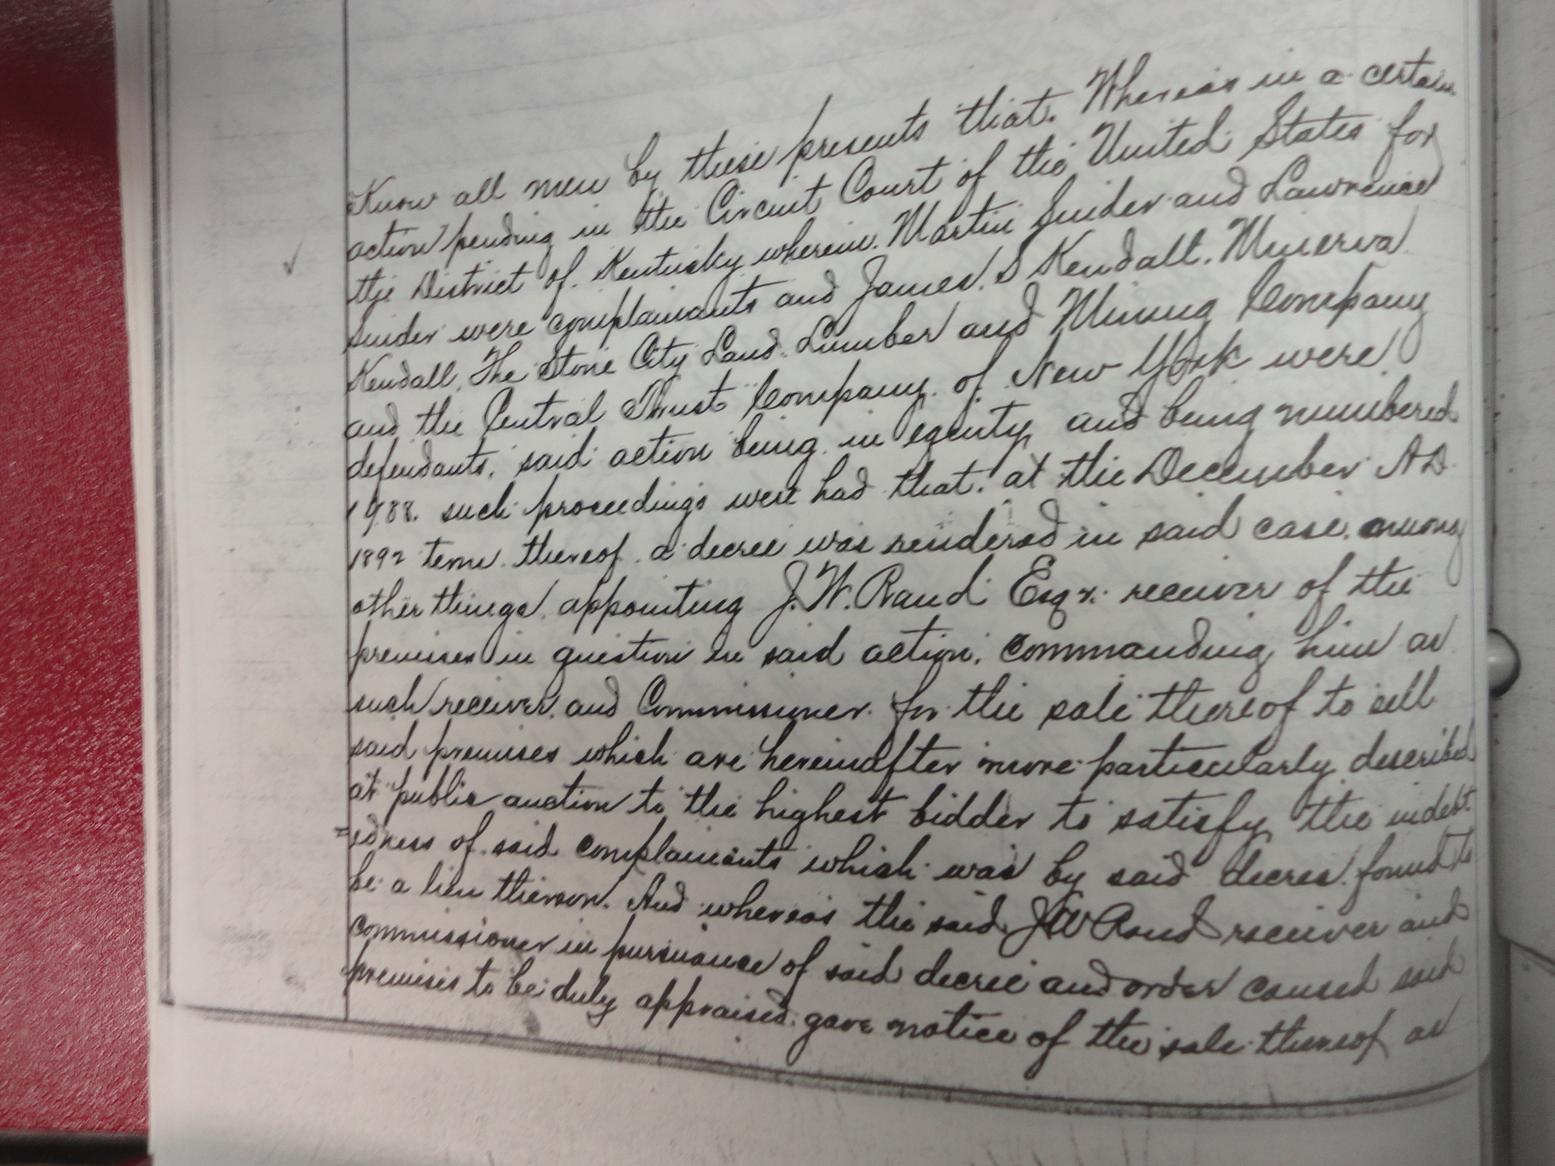 Know all men by these presents that. Whereas in a certain
action pending in the Circuit Court of the United States for
the District of Kentucky wherein. Martin Snider and Lawrence
Snider were complainants and James. S Kendall. Minerva
Kendall, The Stone City Land. Lumber and Mining Company
and the Central Trust Company of New York were
defendants, said action being in equity and being numbered
1988. such proceedings were had that. at the December A.D.
1892 term thereof a decree was rendered in said case. among
other things appointing J. W. Rand Esqr. receiver of the
premises in question in said action, commanding him as
such receiver and Commissioner for the sale thereof to sell
said premises which are hereinafter more particularly described
at public auction to the highest bidder to satisfy the indebt
=edness of said complainants which was by said decree found to
be a lien thereon. And whereas the said J W Rand receiver and
commissioner in pursuance of said decree and order caused said
premises to be duly appraised. gave notice of the sale thereof as